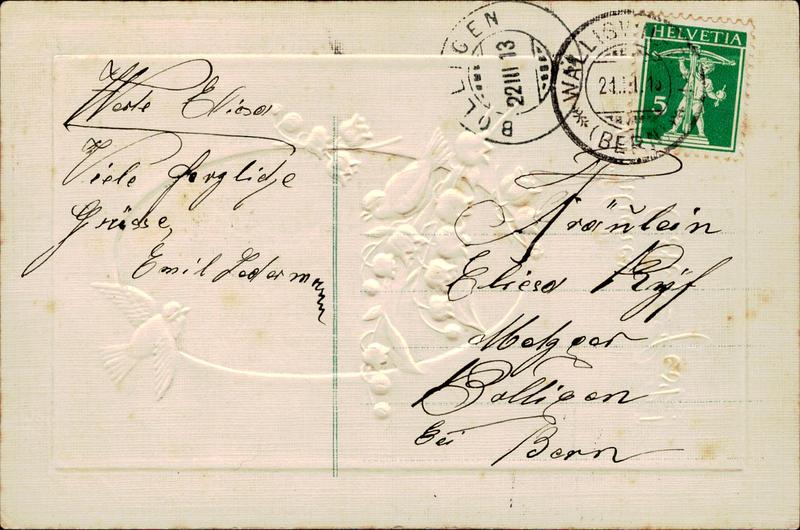 Werte Eliesa
Viele herzlidje
Grüsse,
Emil Lederm
BOLLIGEN
22 III 13
WALLISW
(BERN)
HELVETIA
5
Fräulein
Eliesa Ryf
Metzger
Bolligen
bei
Bern